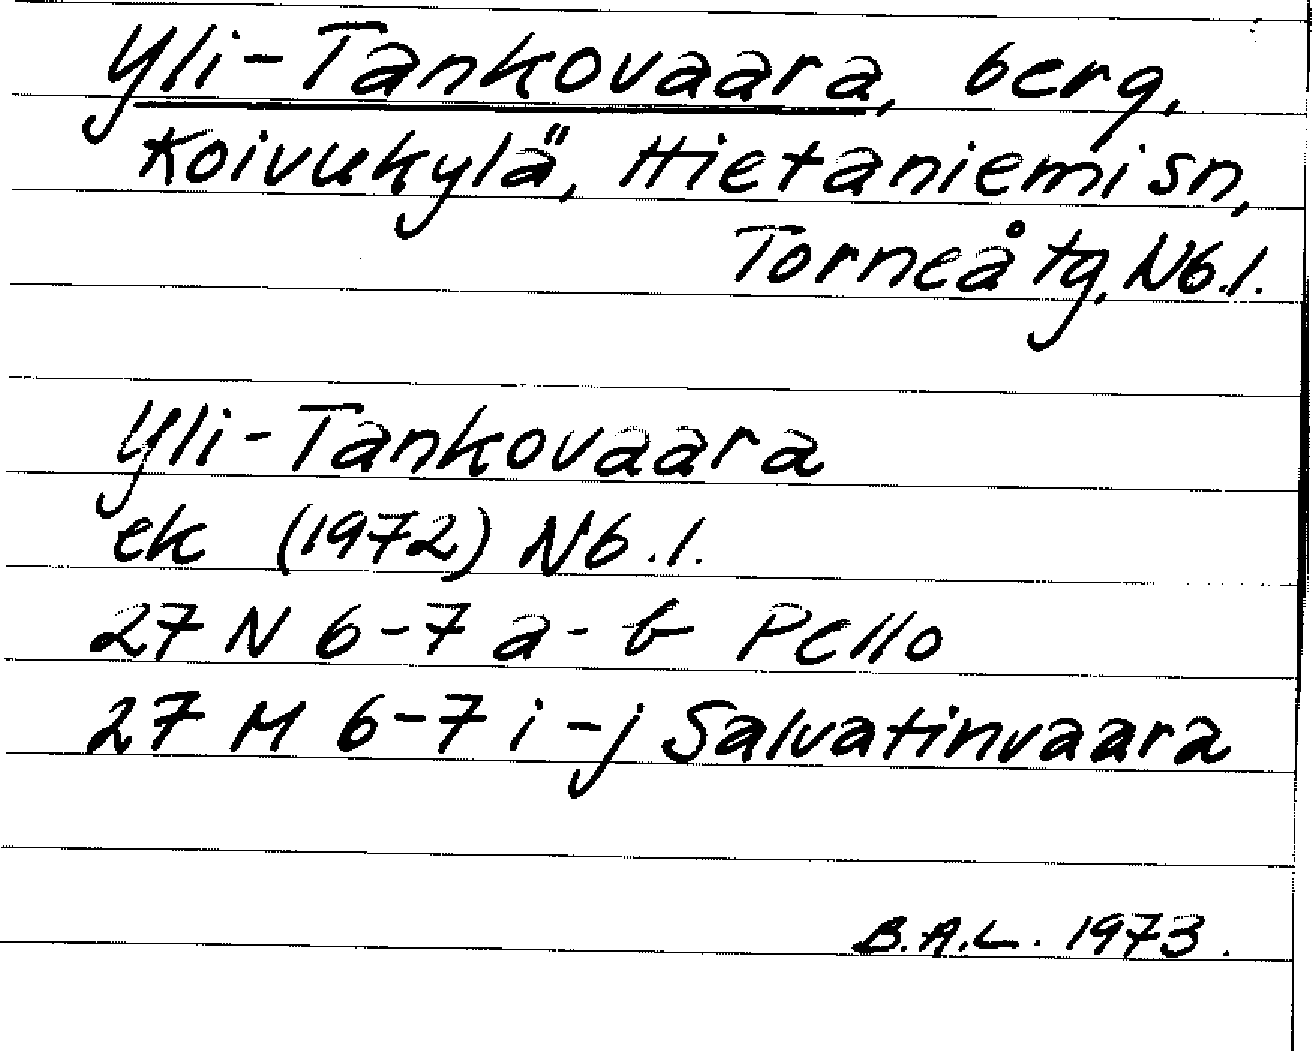 Yli-Tankovaara, berg,
Koivukylä, Hietaniemi sn,
Torneå tg, Nb.l.
Yli-Tankovaara
ek (1972) Nb.l.
27 N 6-7 a-b Pello
27 M 6-7 i-j Salvatinvaara
B.A.L. 1973.